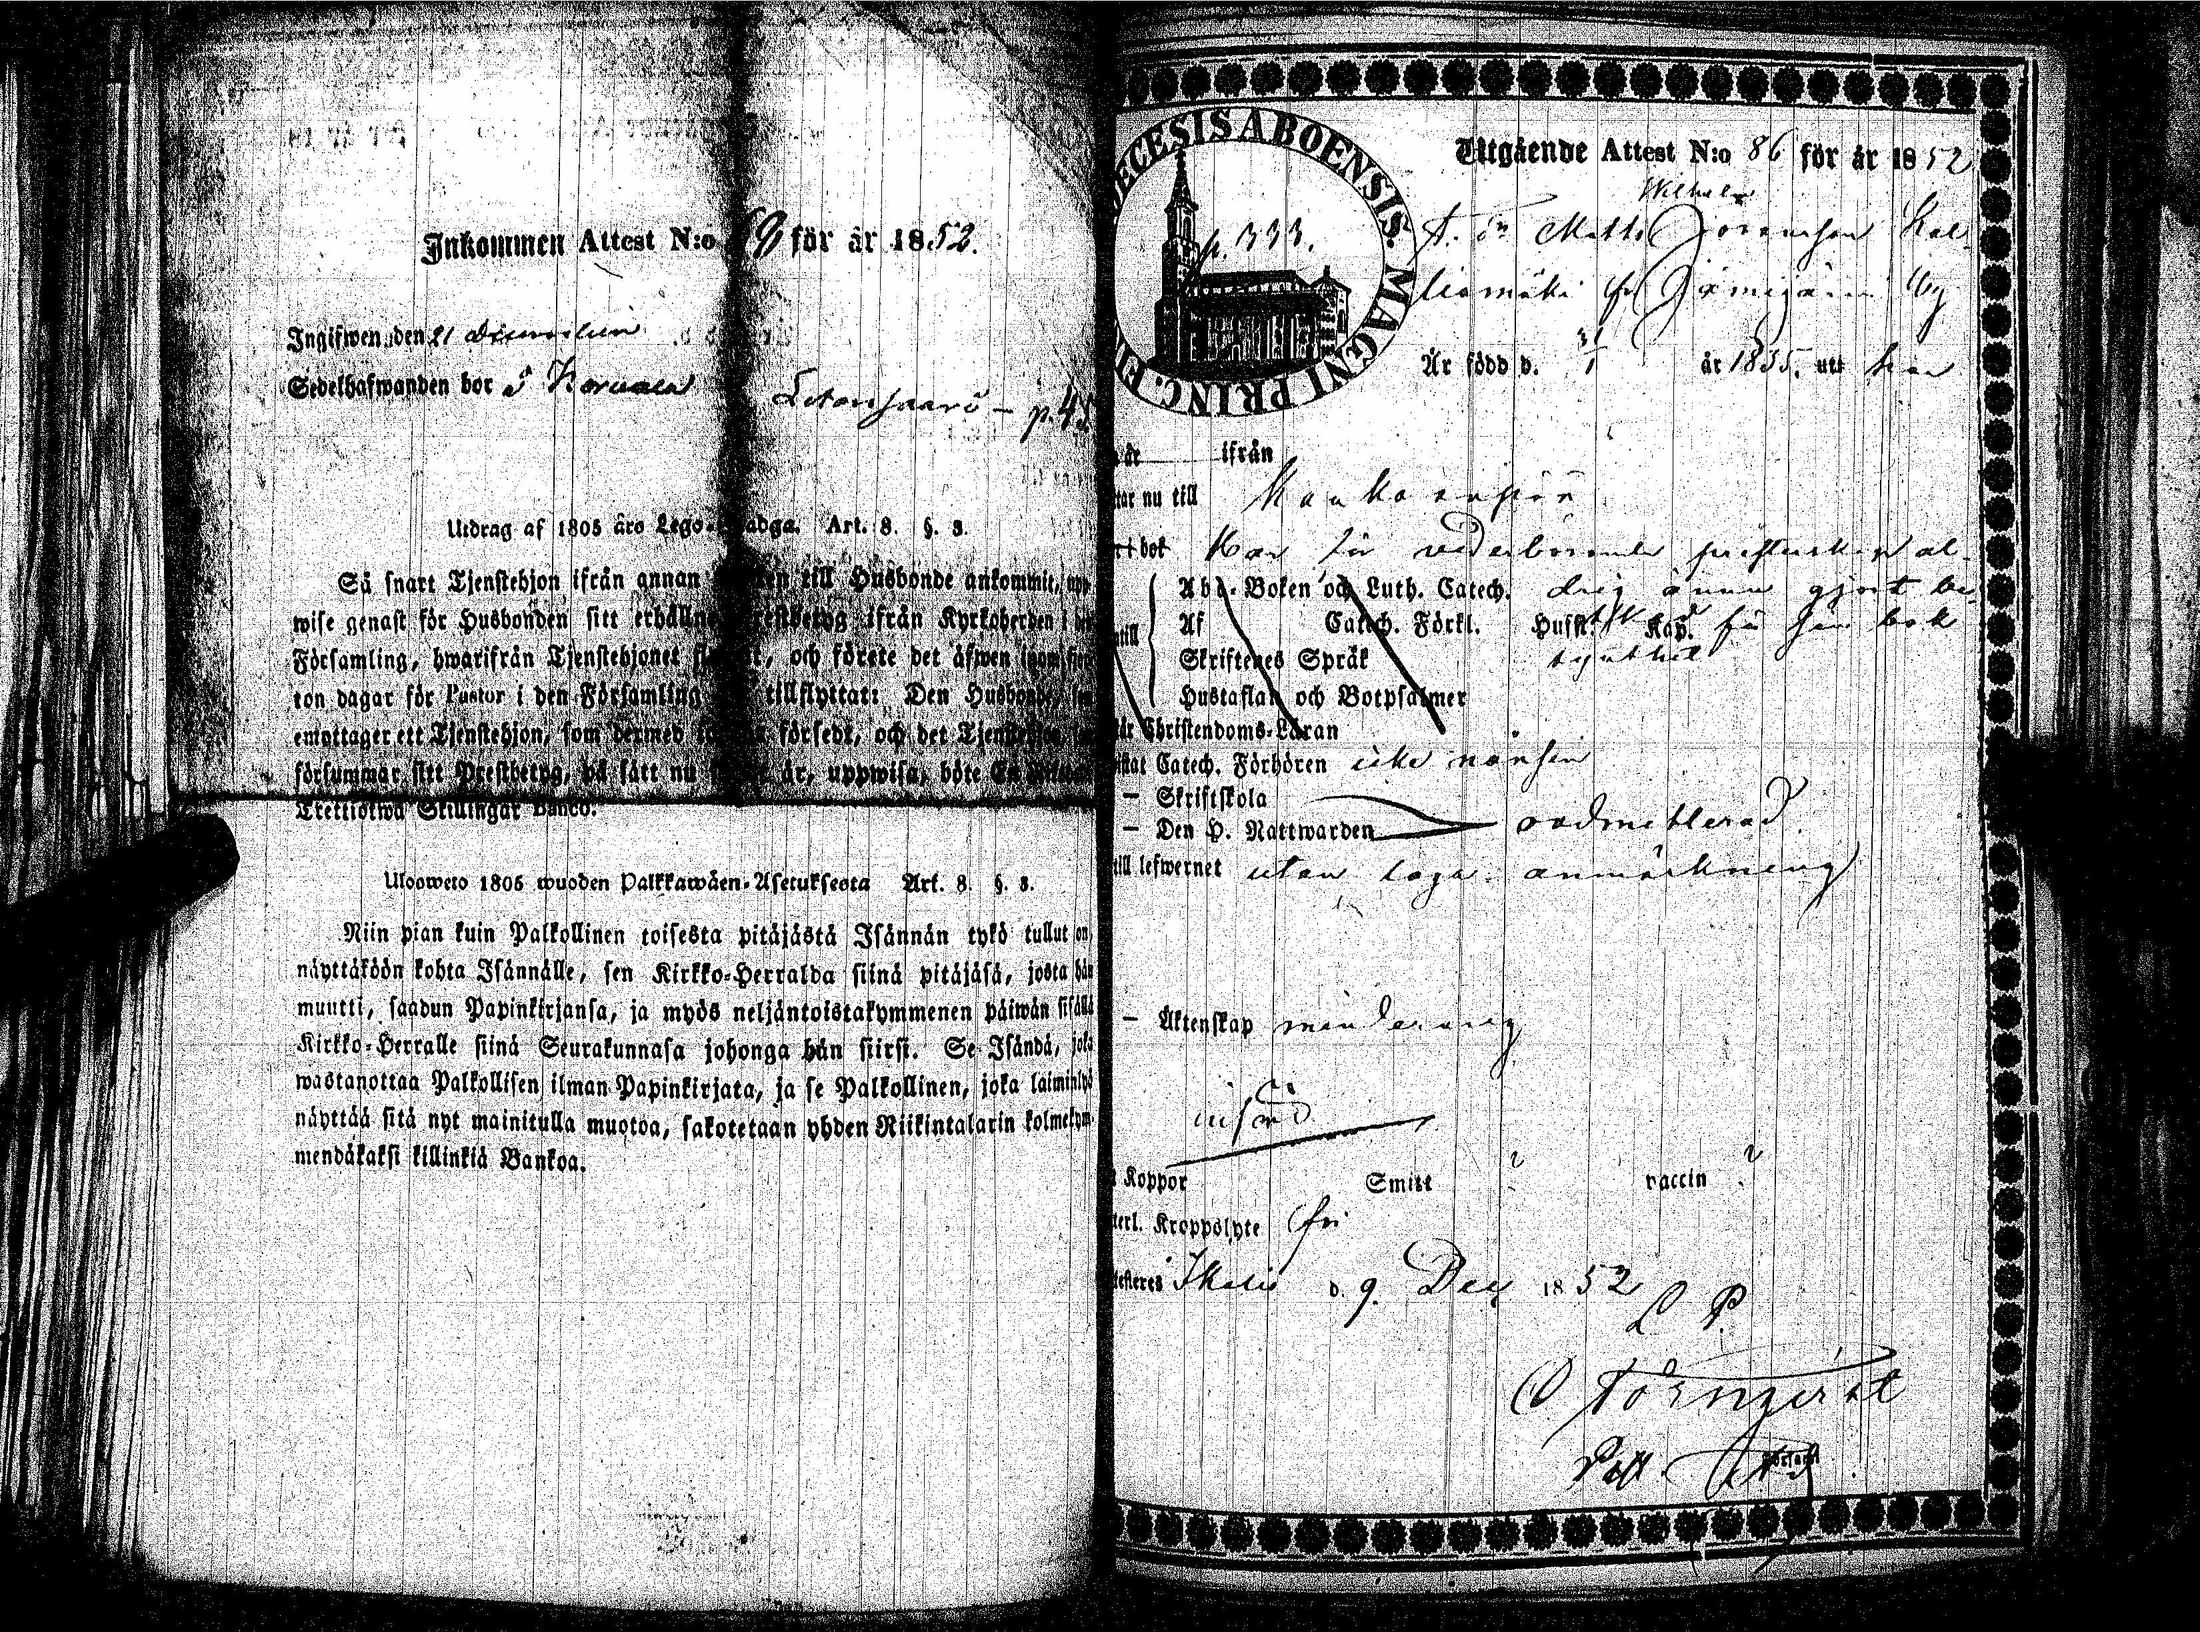 Inkommen Attest N:o 8 för år 1852.
Ingifwen den 21 December
Sedelhafwanden bor i
p. 45
Utdrag af 1805 års Lego-Stadga. Art. 8. §. 3.
Så snart Tjenstehjon ifrån annan till Husbonde ankommit, upp
wise genast för Husbonden sitt erhållne Prestbetyg ifrån Kyrkoherden i den
Församling, hwarifrån Tjenstehjonet och förete det äfwen inom fjor
ton dagar för Pastor i den Församling tillflyttat: Den Husbonde, som
emottager ett Tjenstehjon, som dermed försedt, och det Tjenstehjon, som
försummar sitt Prestbetyg, på sätt nu är, uppwisa, böte En Riksdaler
Trettiotwå Skillingar Banco.
Ulosweto 1805 wuoden Palkkawäen-Asetuksesta Art. 8. §. 3.
Niin pian kuin Palkollinen toisesta pitäjästä Isännän tykö tullut on,
näyttäköön kohta Isännälle, sen Kirkko-Herralda siinä pitäjäsä, josta hän
muutti, saadun Papinkirjansa, ja myös neljäntoistakymmenen päiwän sisällä
Kirkko-Herralle siinä Seurakunnasa johonga hän siirsi. Se Isändä, joka
wastanottaa Palkollisen ilman Papinkirjata, ja se Palkollinen, joka laiminlyö
näyttää sitä nyt mainitulla muotoa, sakotetaan yhden Riikintalarin kolmekym
mendäkaksi killinkiä Bankoa.
ECESIS ABOENSIS. MAGNI PRINC. FI
p. 333.
Utgående Attest N:o 86 för år 1852
Wilhelm
Matts Johansson Kal-
liomäki fr by
Är född d. 31/1 år 1835, utt här
år ifrån
tar nu till Kankaanpää
bok Har för wederbörande presterskap al-
Abc-Boken och Luth. Catech. drig ännu gjort be-
till Af Catech. Förkl. Husst. Kap. sin bok
Skriftenes Språk
Hustaflan och Botpsalmer
Christendoms-Läran
Catech. Förhören icke nånsin
— Skriftskola
— Den H. Nattwarden oadmitterad
till lefwernet utan laga anmärkning
— Äktenskap minderårig
införd
Koppor Smitt ? vaccin ?
Kroppslyte fri
Ikalis d. 9. Dec 1852
L P.